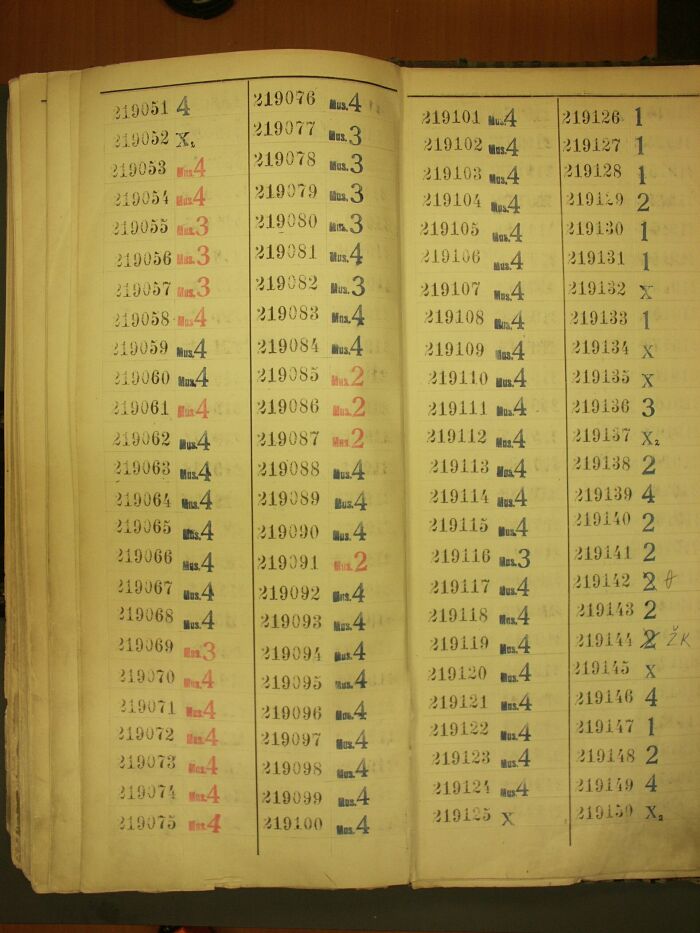 219051 4
219052 X₂
219053 Mus.4
219054 Mus.4
219055 Mus.3
219056 Mus.3
219057 Mus.3
219058 Mus.4
219059 Mus.4
219060 Mus.4
219061 Mus.4
219062 Mus.4
219063 Mus.4
219064 Mus.4
219065 Mus.4
219066 Mus.4
219067 Mus.4
219068 Mus.4
219069 Mus.3
219070 Mus.4
219071 Mus.4
219072 Mus.4
219073 Mus.4
219074 Mus.4
219075 Mus.4
219076 Mus.4
219077 Mus.3
219078 Mus.3
219079 Mus.3
219080 Mus.3
219081 Mus.4
219082 Mus.3
219083 Mus.4
219084 Mus.4
219085 Mus.2
219086 Mus.2
219087 Mus.2
219088 Mus.4
219089 Mus.4
219090 Mus.4
219091 Mus.2
219092 Mus.4
219093 Mus.4
219094 Mus.4
219095 Mus.4
219096 Mus.4
219097 Mus.4
219098 Mus.4
219099 Mus.4
219100 Mus.4
219101 Mus.4
219102 Mus.4
219103 Mus.4
219104 Mus.4
219105 Mus.4
219106 Mus.4
219107 Mus.4
219108 Mus.4
219109 Mus.4
219110 Mus.4
219111 Mus.4
219112 Mus.4
219113 Mus.4
219114 Mus.4
219115 Mus.4
219116 Mus.3
219117 Mus.4
219118 Mus.4
219119 Mus.4
219120 Mus.4
219121 Mus.4
219122 Mus.4
219123 Mus.4
219124 Mus.4
219125 X
219126 1
219127 1
219128 1
219129 2
219130 1
219131 1
219132 X
219133 1
219134 X
219135 X
219136 3
219137 X₂
219138 2
219139 4
219140 2
219141 2
219142 2
219143 2
219144 2 ŽK
219145 X
219146 4
219147 1
219148 2
219149 4
219150 X₂